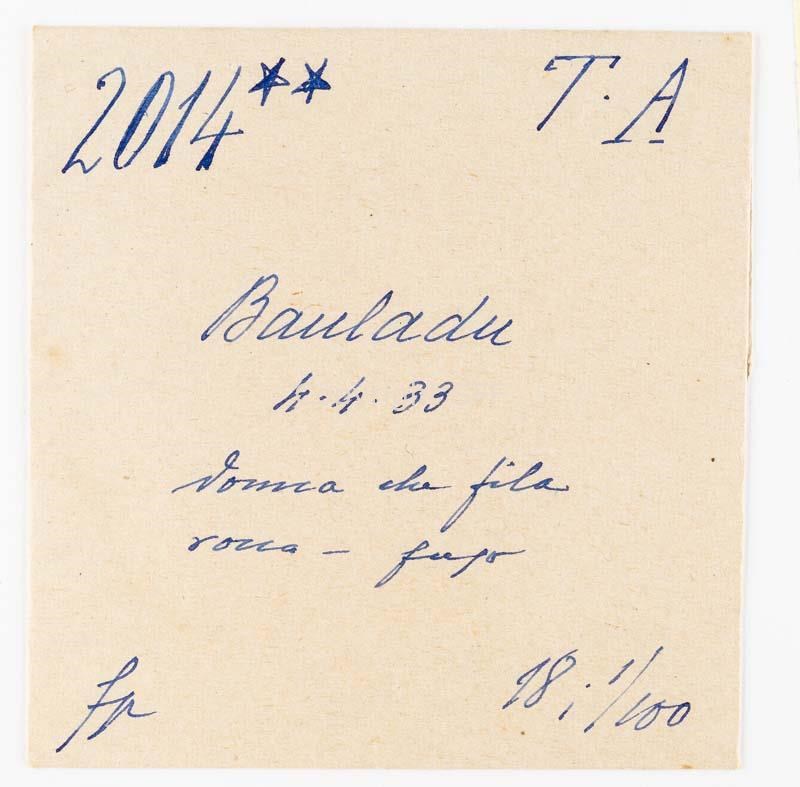 2014** T. A
Bauladu
4.4.33
donna che fila
rocca - fuso
fp
18; 1/100